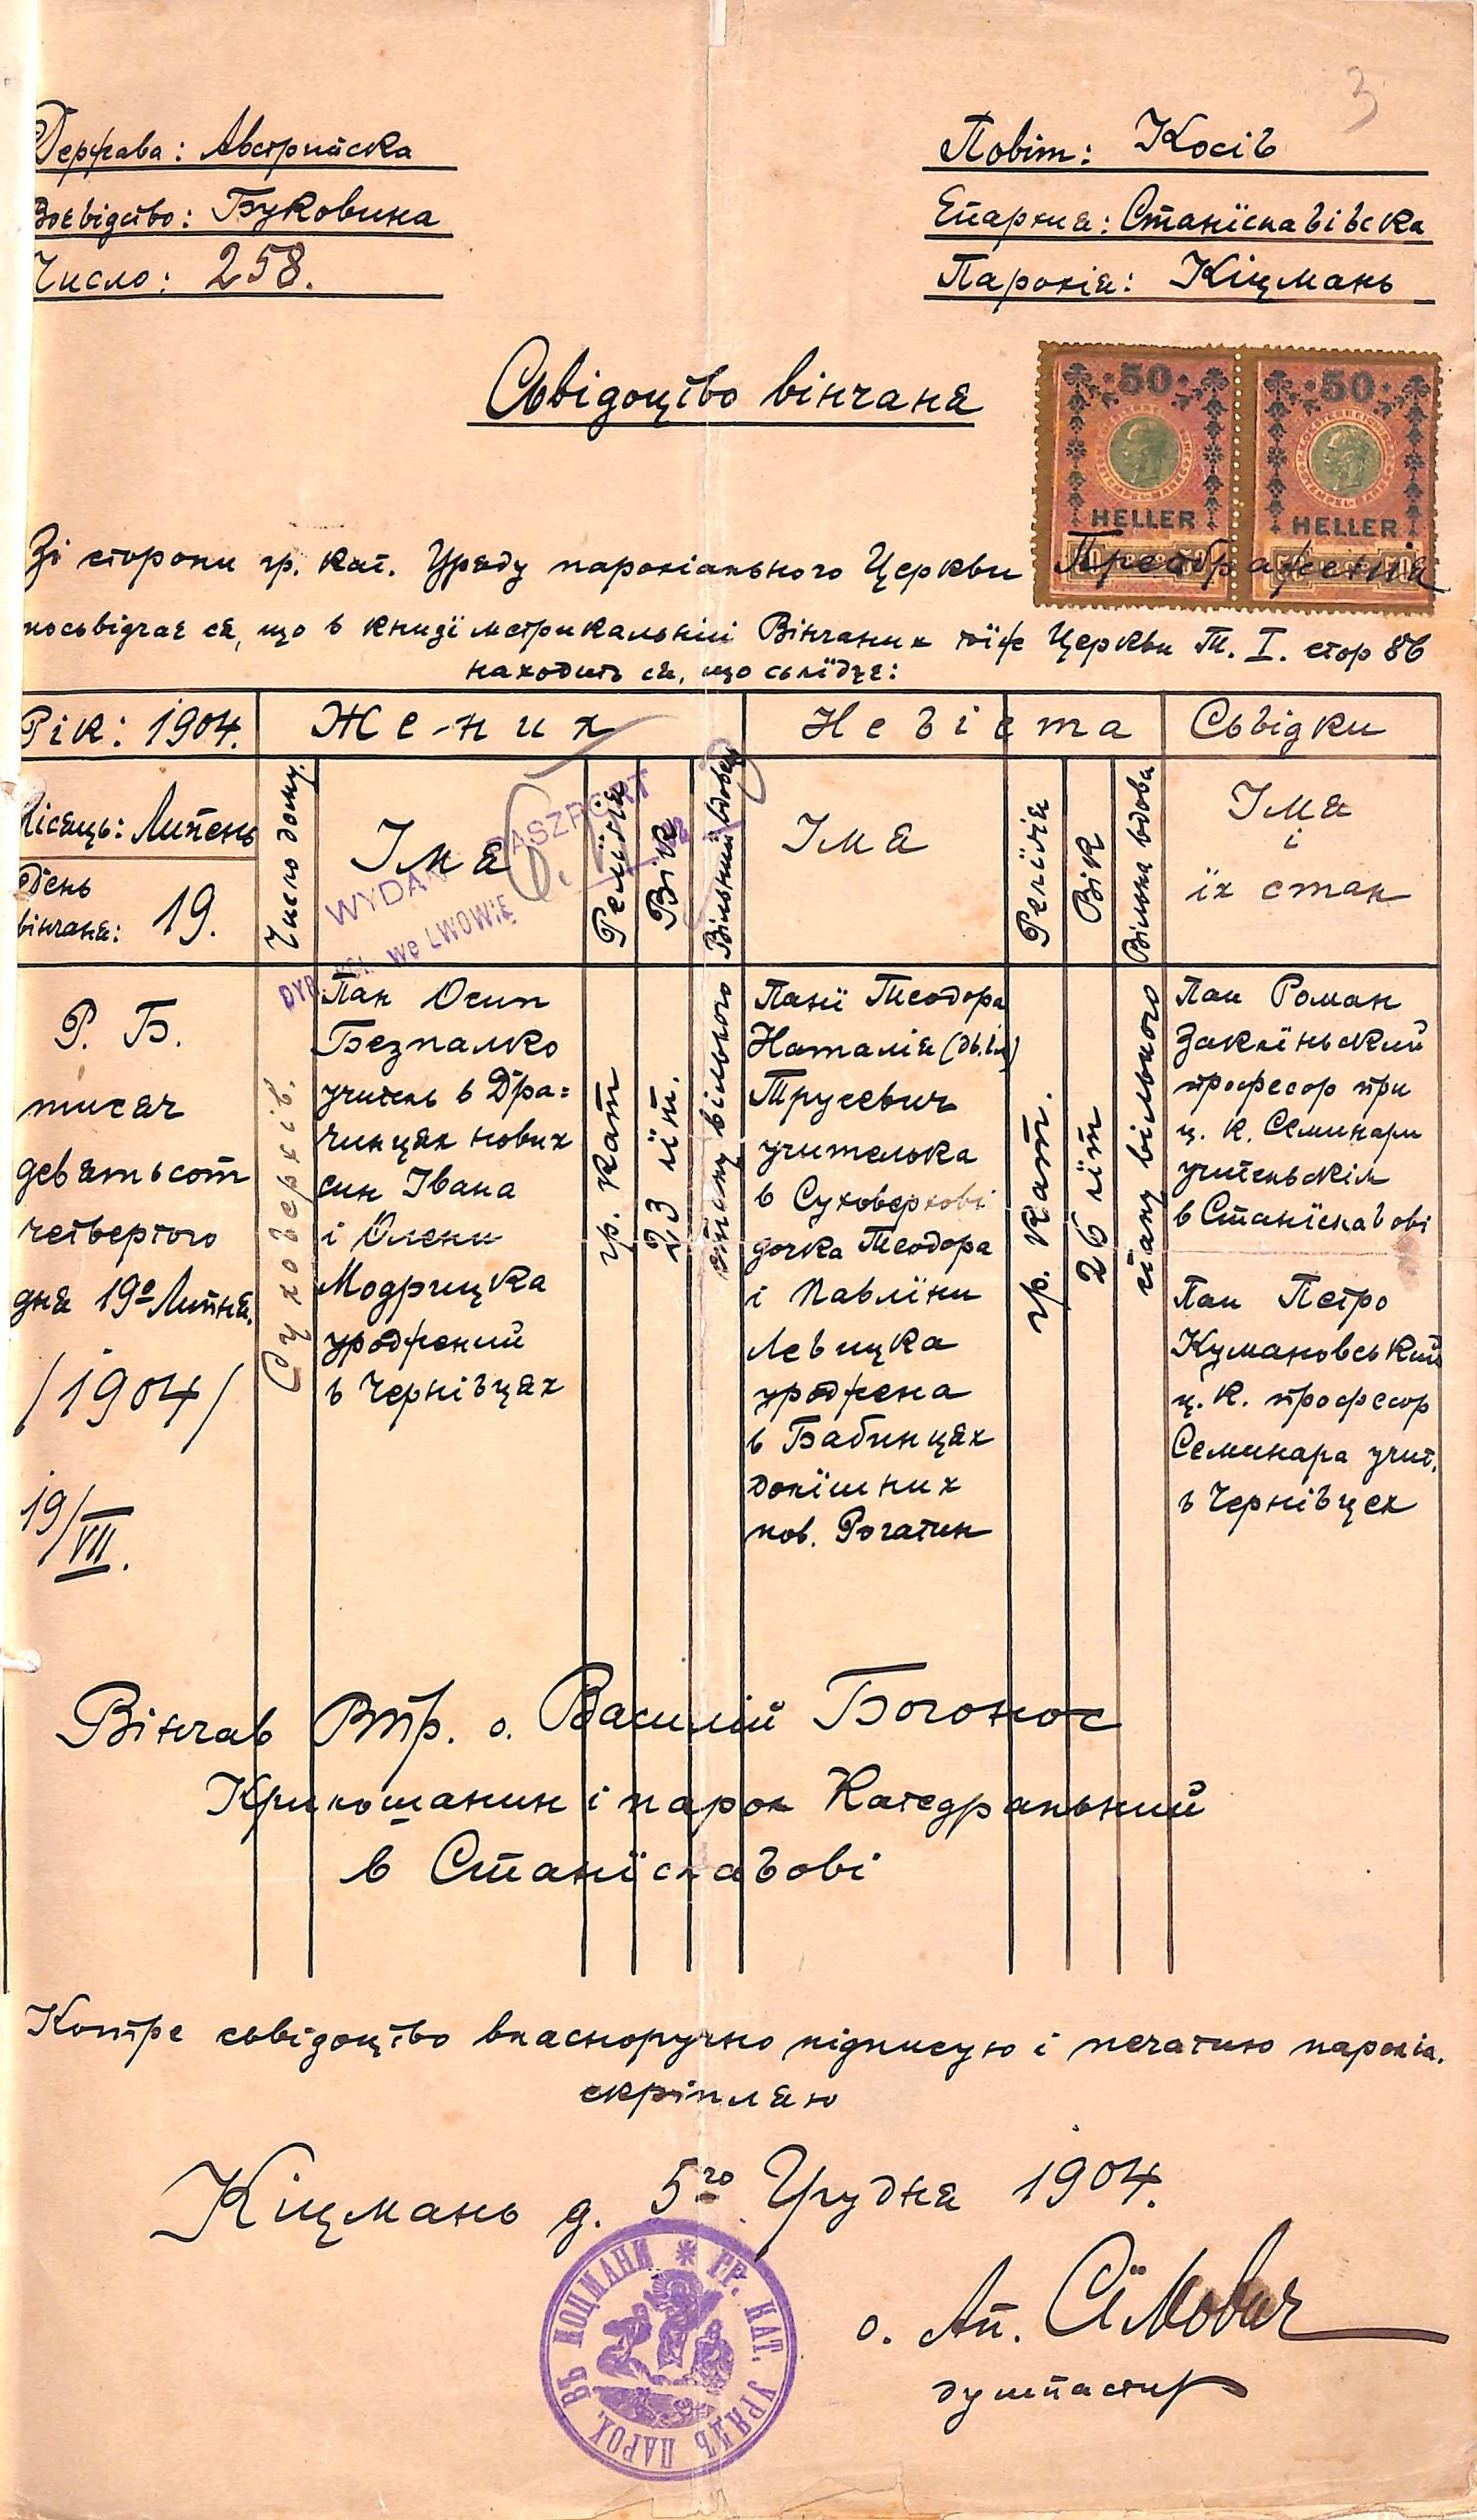 3
Держава: Австрийска
Воєвідство: Буковина
Число: 258.
Повіт: Косів
Епархия: Станїславівска
Парохія: Кіцмань
Сьвідоцтво вінчаня
50 HELLER
50 HELLER
Зі сторони гр. кат. Уряду парохіального Церкви Преображенія
посьвідчає ся, що в книзї метрикальнїй Вінчаних тоїж Церкви Т. I. стор 86
находить ся, що слїдує:
Рік: 1904.
Жених
Невіста
Сьвідки
Місяць: Липень
День вінчаня: 19.
Число дому.
Імя
Релїґія
Вік
Вільний вдовец
Імя
Релїґія
Вік
Вільна вдова
Імя
і
їх стан
WYDANO PASZPORT
We LWOWIE
Р. Б.
тисяч
девятьсот
четвертого
дня 19о Липня.
/1904/
19/VII.
Суховерхів.
Пан Осип
Безпалко
учитель в Дра=
чинцях нових
син Івана
і Олени
Модрицка
уроджений
в Чернівцях
гр. кат
23 лїт.
стану вільного
Панї Теодора
Наталія (дв. ім)
Трусевич
учителька
в Суховерхові
дочка Теодора
і Павлїни
Левицка
уроджена
в Бабинцях
долїшних
пов. Рогатин
гр. кат.
26 лїт
стану вільного
Пан Роман
Заклїньский
професор при
ц. к. Семинари
учительскім
в Станїславові
Пан Петро
Кумановський
ц. к. професор
Семинара учит.
в Чернівцях
Вінчав Впр. о. Василий Богонос
Крилошанин і парох Катедральний
в Станїславові
Котре сьвідоцтво власноручно підписую і печатию парохія.
скріпляю
Кіцмань д. 5го Грудня 1904.
ГР. КАТ. УРЯДЪ ПАРОХ. ВЪ КОЦМАНИ
о. Ап. Сїмович
душпастир